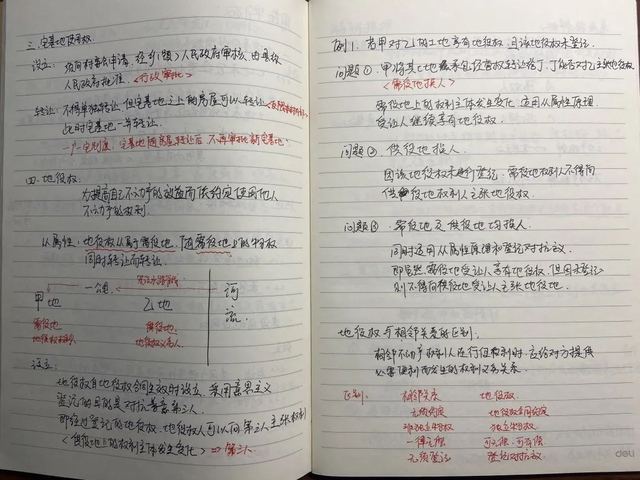 三. 宅基地使用权
设立: 须向村委会申请, 经乡(镇)人民政府审核, 由县级
人民政府批准. <行政审批>
转让: 不得单独转让, 但宅基地之上的房屋可以转让
此时宅基地一并转让.
一户一宅制度, 宅基地因房屋转让后, 不再审批新宅基地.
四. 地役权
为提高自己不动产的效益而依约定使用他人
不动产的权利.
从属性: 地役权从属于需役地, 随需役地上的物权
同时转让而转让.
一公里
甲地
乙地
河流
需役地
地役权权利人
供役地
地役权义务人
设立:
地役权自地役权合同生效时设立, 采用意思主义
登记的目的是对抗善意第三人.
即经过登记的地役权, 地役权人可以向第三人主张权利
<供役地上的权利主体发生变化> ⇒ 第三人
例1. 若甲对乙的土地享有地役权, 且该地役权未登记.
问题① 甲将其土地承包经营权转让给丁, 丁能否对乙主张地役权
<需役地换人>
需役地上的权利主体发生变化, 适用从属性原理
受让人继续享有地役权.
问题② 供役地换人.
因该地役权未进行登记, 需役地权利人不得向
供役地权利人主张地役权.
问题③ 需役地及供役地均换人.
同时适用从属性原理和登记对抗主义.
即虽然需役地受让人享有地役权, 但因未登记
则不得向供役地受让人主张地役权.
地役权与相邻关系的区别.
相邻不动产权利人在行使权利时, 应给对方提供
必要便利而发生的权利义务关系.
区别: 相邻关系 地役权.
无须约定 地役权合同约定
非独立物权 独立物权.
一律无偿 可无偿, 可有偿
无须登记 登记对抗主义.
deli